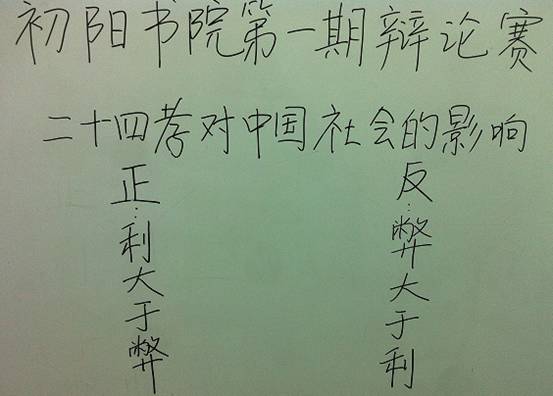 初阳书院第一期辩论赛
二十四孝对中国社会的影响
正：利大于弊
反：弊大于利